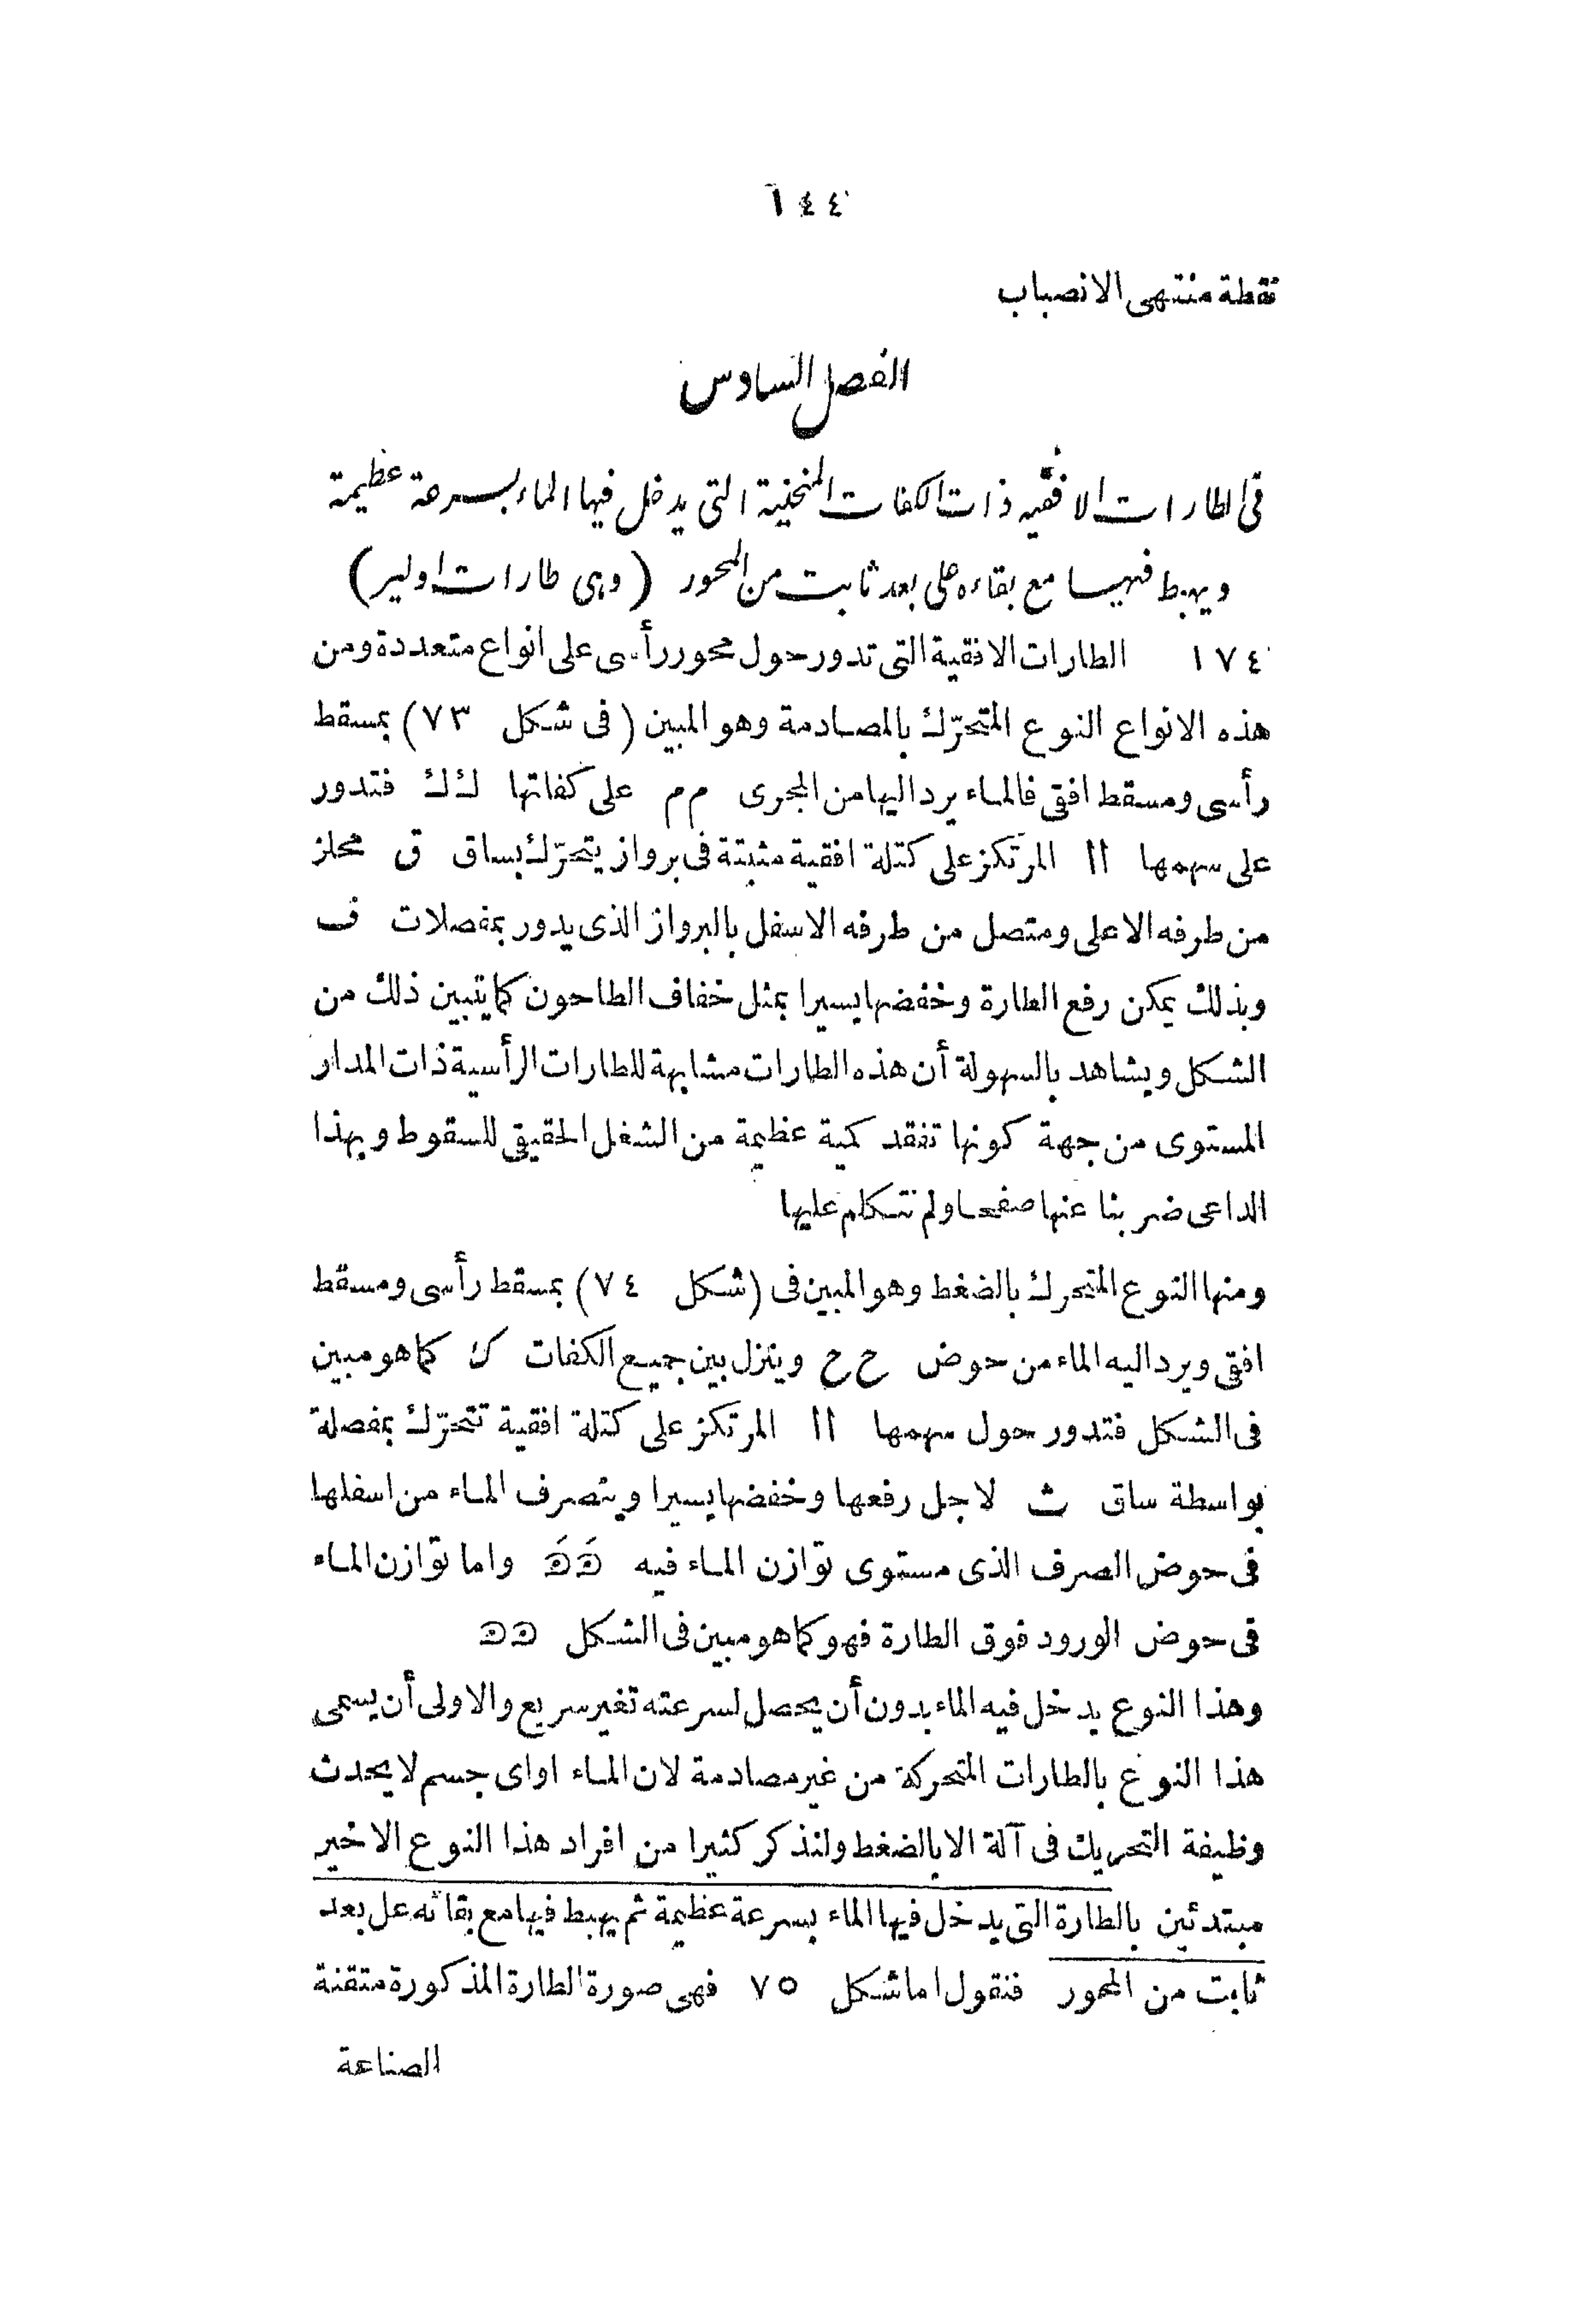 ١٤٤
نقطة منتهى الانصباب
الفصل السادس
فى الطارات الافقيه ذات الكفات المنحنية التى يدخل فيها الماء بسرعة عظيمة
ويهبط فيها مع بقاءه على بعد ثابت من المحور (وهى طارات اولير)
١٧٤ الطارات الافقية التى تدور حول محور رأسى على انواع متعددة ومن
هذه الانواع النوع المتحرّك بالمصادمة وهو المبين (فى شكل ٧٣) بمسقط
رأسى ومسقط افقى فالماء يرد اليها من المجرى م م على كفاتها ك ك فتدور
على سهمها ا ا المرتكز على كتلة افقية مثبتة فى برواز يتحرّك بساق ق محلز
من طرفه الاعلى ومتصل من طرفه الاسفل بالبرواز الذى يدور بمفصلات ف
وبذلك يمكن رفع الطارة وخفضها يسيرا بمثل خفاف الطاحون كما يتبين ذلك من
الشكل ويشاهد بالسهولة أن هذه الطارات مشابهة للطارات الرأسية ذات المدار
المستوى من جهة كونها تفقد كمية عظيمة من الشغل الحقيقى للسقوط وبهذا
الداعى ضربنا عنها صفحا ولم نتكلم عليها
ومنها النوع المتحرك بالضغط وهو المبين فى (شكل ٧٤) بمسقط رأسى ومسقط
افقى ويرد اليه الماء من حوض ح ح وينزل بين جميع الكفات ك كما هو مبين
فى الشكل فتدور حول سهمها ا ا المرتكز على كتلة افقية تتحرّك بمفصلة
بواسطة ساق ث لاجل رفعها وخفضها يسيرا وينصرف الماء من اسفلها
فى حوض الصرف الذى مستوى توازن الماء فيه واما توازن الماء
فى حوض الورود فوق الطارة فهو كما هو مبين فى الشكل
وهذا النوع يدخل فيه الماء بدون أن يحصل لسرعته تغير سريع والاولى أن يسمى
هذا النوع بالطارات المتحركة من غير مصادمة لان الماء او اى جسم لا يحدث
وظيفة التحريك فى آلة الا بالضغط ولنذكر كثيرا من افراد هذا النوع الاخير
مبتدئين بالطارة التى يدخل فيها الماء بسرعة عظيمة ثم يهبط فيها مع بقائه على بعد
ثابت من المحور فنقول اما شكل ٧٥ فهى صورة الطارة المذكورة متقنة
الصناعة